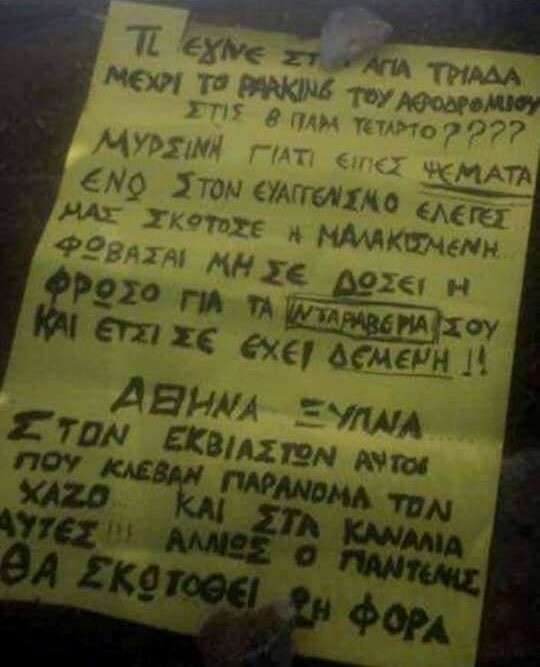 ΤΙ ΕΓΙΝΕ ΣΤΗΝ ΑΓΙΑ ΤΡΙΑΔΑ
ΜΕΧΡΙ ΤΟ PARKING ΤΟΥ ΑΕΡΟΔΡΟΜΙΟΥ
ΣΤΙΣ 8 ΠΑΡΑ ΤΕΤΑΡΤΟ????
ΜΥΡΣΙΝΗ ΓΙΑΤΙ ΕΙΠΕΣ ΨΕΜΑΤΑ
ΕΝΩ ΣΤΟΝ ΕΥΑΓΓΕΝΙΣΜΟ ΕΛΕΓΕΣ
ΜΑΣ ΣΚΩΤΟΣΕ Η ΜΑΛΑΚΙΣΜΕΝΗ...
ΦΩΒΑΣΑΙ ΜΗ ΣΕ ΔΩΣΕΙ Η
ΦΡΩΣΟ ΓΙΑ ΤΑ ΙΝΤΑΡΑΒΕΡΙΑ ΣΟΥ
ΚΑΙ ΕΤΣΙ ΣΕ ΕΧΕΙ ΔΕΜΕΝΗ !!
ΑΘΗΝΑ ΞΥΠΝΑ...
ΣΤΟΝ ΕΚΒΙΑΣΤΩΝ ΑΥΤΟΙ
ΠΟΥ ΚΛΕΒΑΝ ΠΑΡΑΝΟΜΑ ΤΟΝ
ΧΑΖΟ... ΚΑΙ ΣΤΑ ΚΑΝΑΛΙΑ
ΑΥΤΕΣ !!! ΑΛΛΙΩΣ Ο ΠΑΝΤΕΛΗΣ
ΘΑ ΣΚΩΤΟΘΕΙ 2Η ΦΟΡΑ